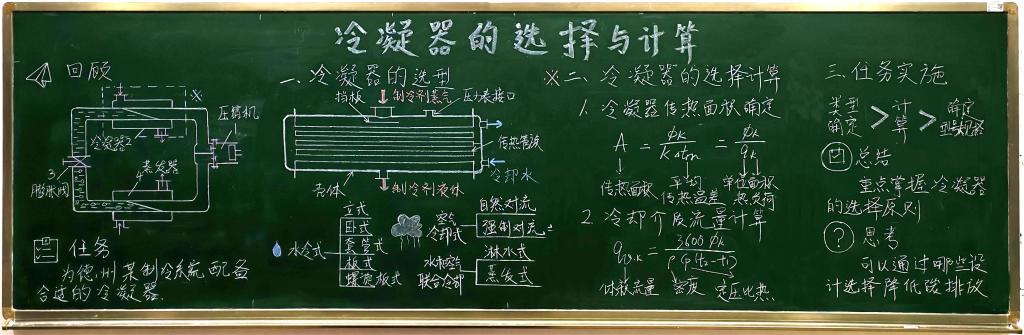 冷凝器的选择与计算
回顾
※
压缩机
冷凝器2
3
膨胀阀
蒸发器
4
任务
为德州某制冷系统配备
合适的冷凝器.
一、冷凝器的选型
挡板
制冷剂蒸气
压力表接口
传热管波
冷却水
壳体
制冷剂液体
水冷式
立式
卧式
套管式
板式
螺旋板式
空气
冷却式
自然对流
强制对流
水和空气
联合冷却
淋水式
蒸发式
※二、冷凝器的选择计算
1. 冷凝器传热面积确定
A = ϕk / KΔtm = ϕk / qk
传热面积
平均
传热温差
单位面积
热负荷
2. 冷却介质流量计算
qv.k = 3600ϕk / ρCp(t2-t1)
体积流量
密度
定压比热
三.任务实施
类型
确定
>
计
算
>
确定
型号规格
总结
重点掌握冷凝器
的选择原则
?
思考
可以通过哪些设
计选择降低碳排放